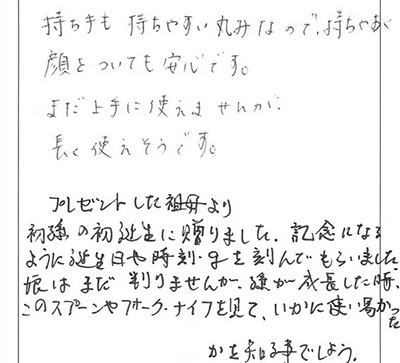 持ち手も 持ちやすい丸みなので、持ちやすく
顔をついても安心です。
まだ上手に使えませんが、
長く使えそうです。
プレゼントした祖母より
初孫の初誕生に贈りました。記念になる
ように誕生日や時刻・gを刻んでもらいました。
娘はまだ判りませんが、孫が成長した時、
このスプーンやフォーク・ナイフを見て、いかに使い易かった
かを知る事でしょう。